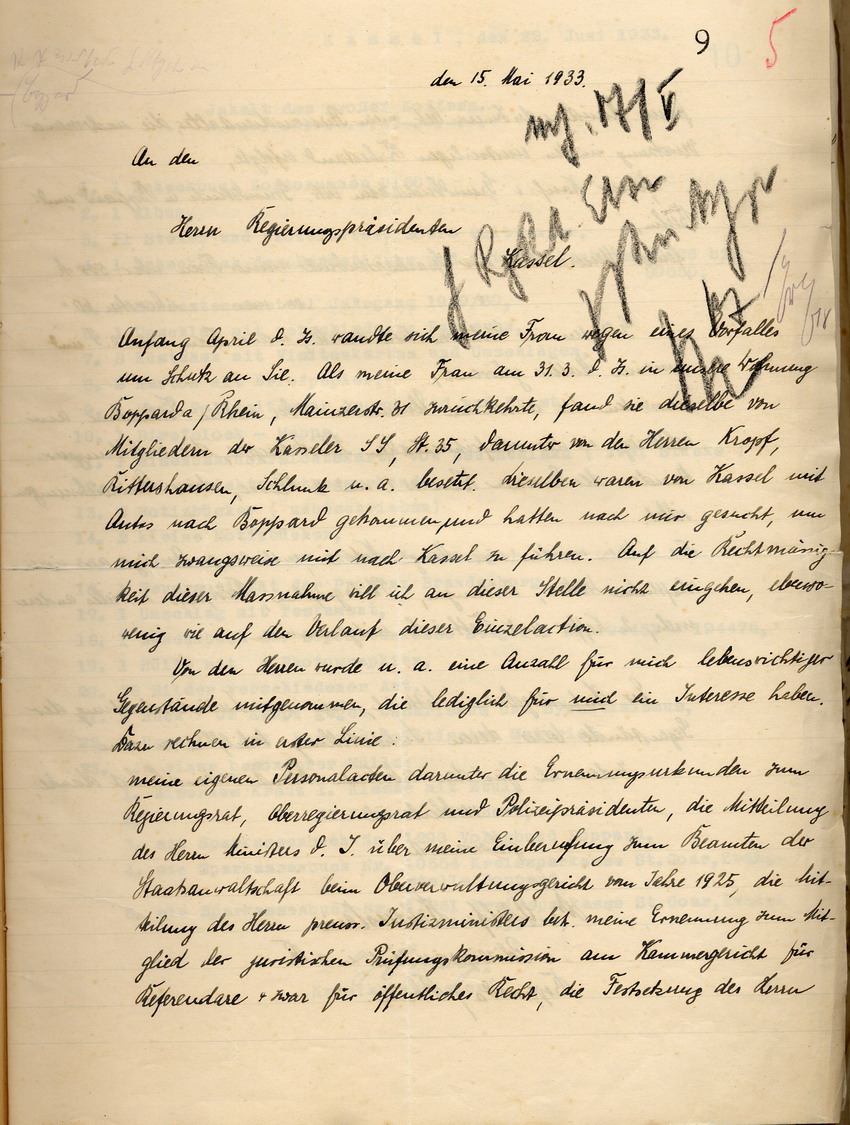 9
5
den 15. Mai 1933.
An den
Herrn Regierungspräsidenten
Kassel.
Anfang April d. Js. wandte sich meine Frau wegen eines Vorfalles
um Schutz an Sie. Als meine Frau am 31. 3. d. Js. in unsere Wohnung
Bopparda/Rhein, Mainzerstr. 31 zurückkehrte, fand sie dieselbe von
Mitgliedern der Kasseler SS, St. 35, darunter von den Herren Kropf,
Rittershausen, Schlunk u. a. besetzt. Dieselben waren von Kassel mit
Autos nach Boppard gekommen und hatten nach mir gesucht, um
mich zwangsweise mit nach Kassel zu führen. Auf die Rechtmässig-
keit dieser Massnahme will ich an dieser Stelle nicht eingehen, ebenso-
wenig wie auf den Verlauf dieser Einzelaction.
Von den Herren wurde u. a. eine Anzahl für mich lebenswichtiger
Gegenstände mitgenommen, die lediglich für mich ein Interesse haben.
Dazu rechnen in erster Linie:
meine eigenen Personalacten darunter die Ernennungsurkunden zum
Regierungsrat, Oberregierungsrat und Polizeipräsidenten, die Mitteilung
des Herrn Ministers d. I. über meine Einberufung zum Beamten der
Staatsanwaltschaft beim Oberverwaltungsgericht vom Jahre 1925, die Mit-
teilung des Herrn preuss. Justizministers betr. meine Ernennung zum Mit-
glied der juristischen Prüfungskommission am Kammergericht für
Referendare + zwar für öffentliches Recht, die Festsetzung des Herrn